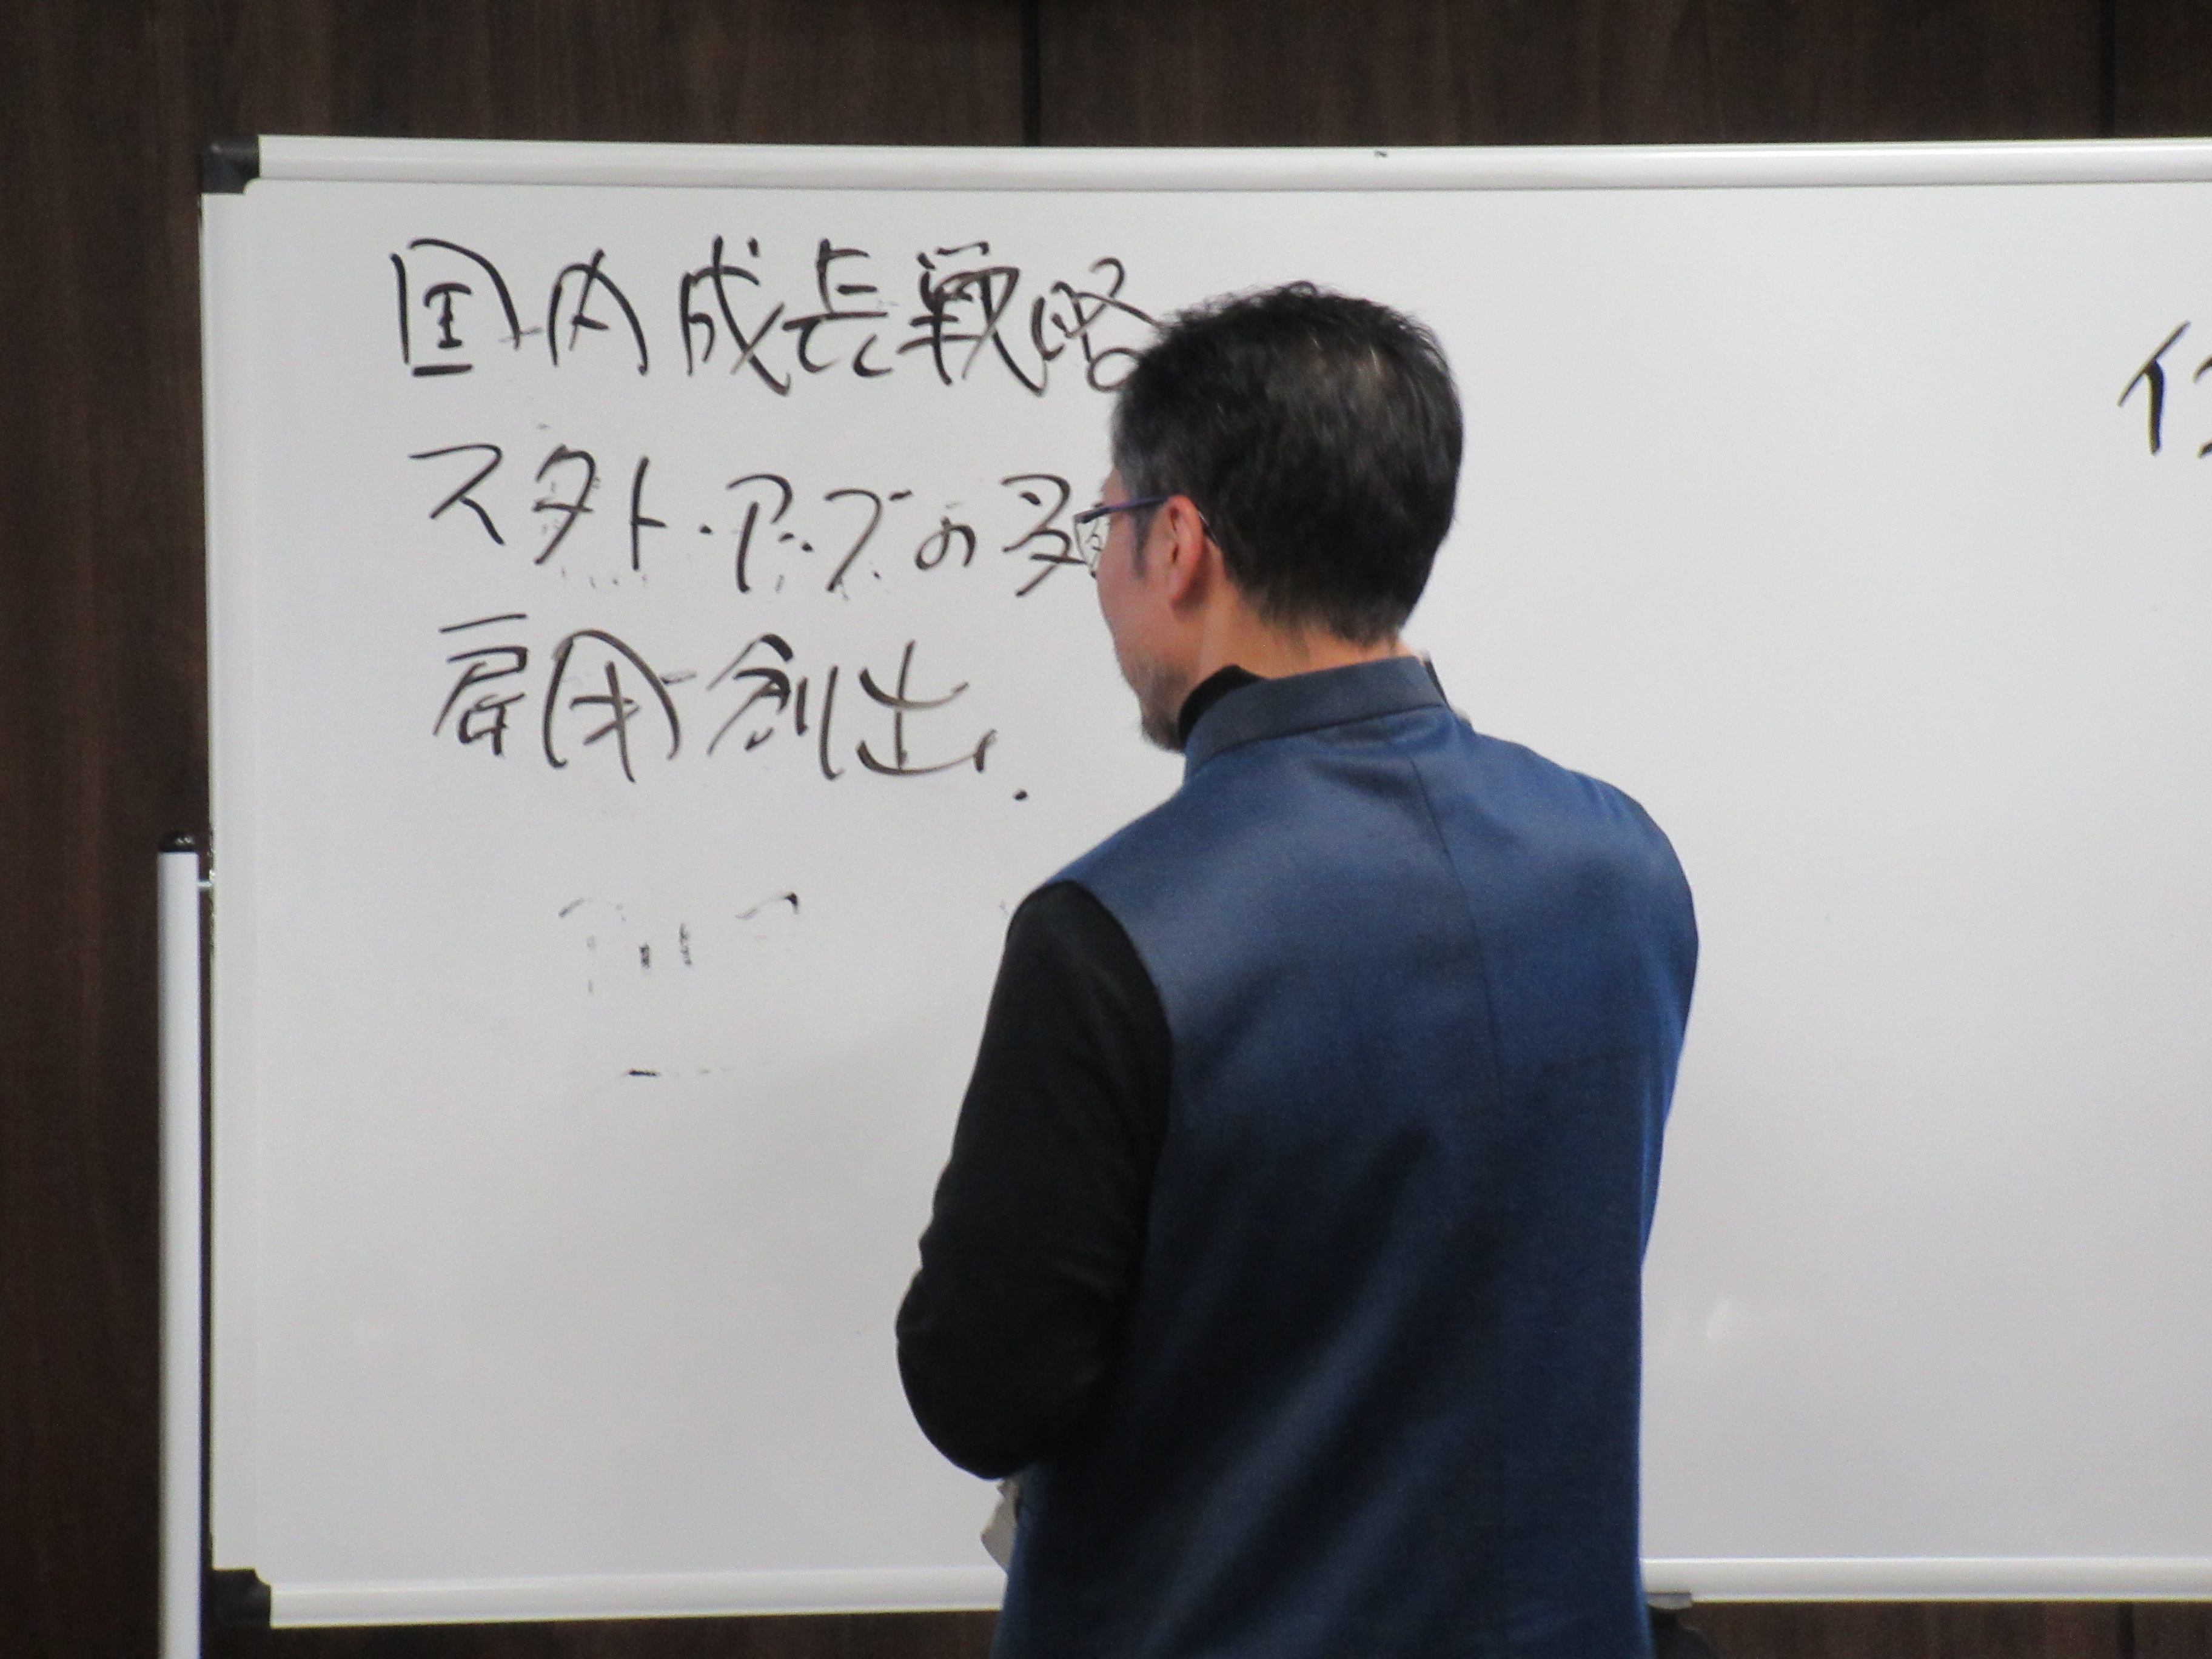 国内成長戦略
スタト・アップの
雇用創出